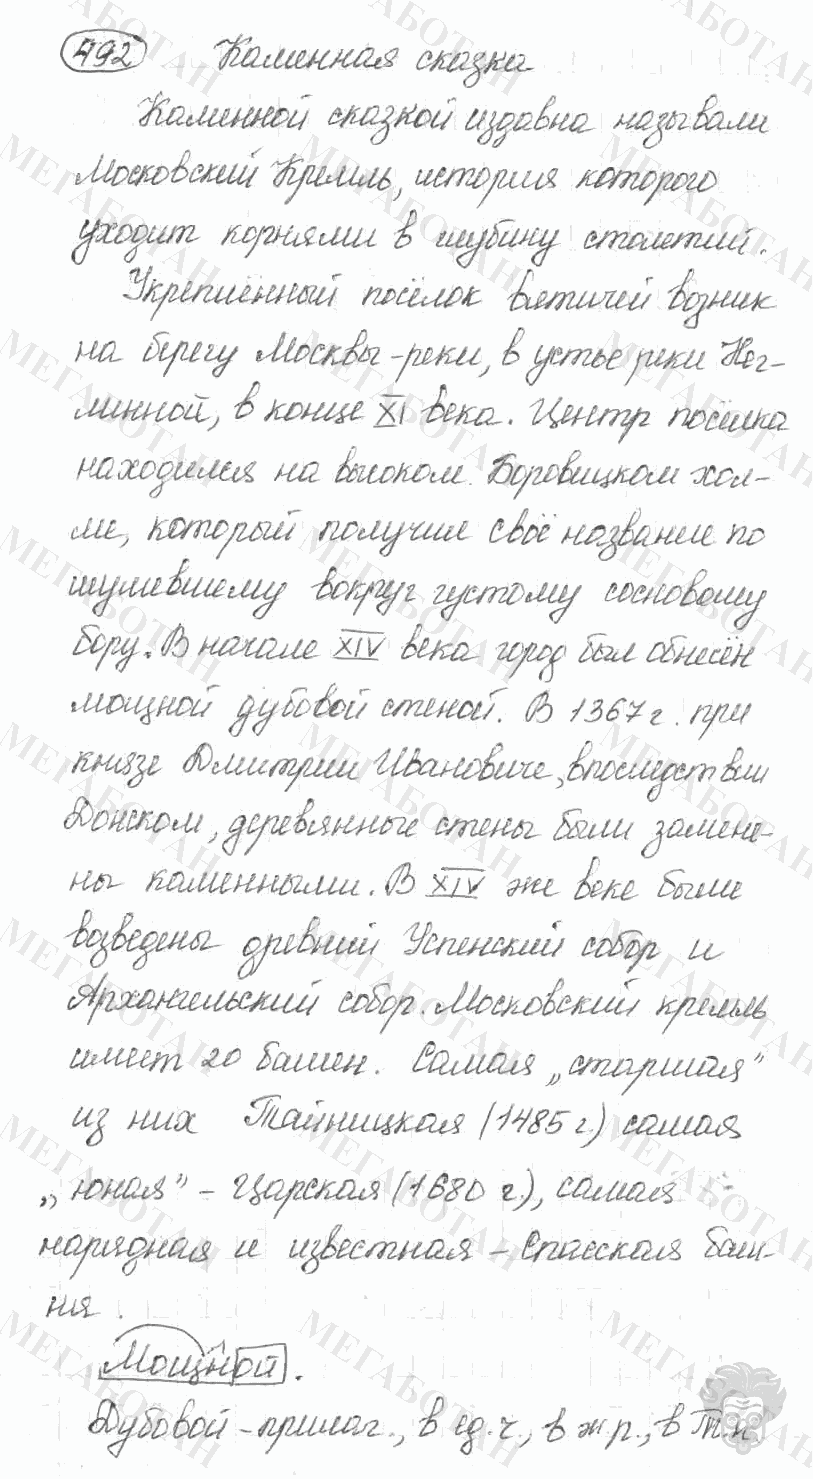 492 Каменная сказка
Каменной сказкой издавна называли
Московский Кремль, история которого
уходит корнями в глубину столетий.
Укреплённый посёлок вятичей возник
на берегу Москвы-реки, в устье реки Нег-
линной, в конце XI века. Центр посёлка
находился на высоком Боровицком хол-
ме, который получил своё название по
шумевшему вокруг густому сосновому
бору. В начале XIV века город был обнесён
мощной дубовой стеной. В 1367 г. при
князе Дмитрии Ивановиче, впоследствии
Донском, деревянные стены были замене-
ны каменными. В XIV же веке были
возведены древний Успенский собор и
Архангельский собор. Московский кремль
имеет 20 башен. Самая „старшая"
из них Тайницкая (1485 г.) самая
„юная" - Царская (1680 г.), самая
нарядная и известная - Спасская баш-
ня.
Мощной.
Дубовой - прилаг., в ед.ч., в ж.р., в Т.п.
МЕГАБОТАН